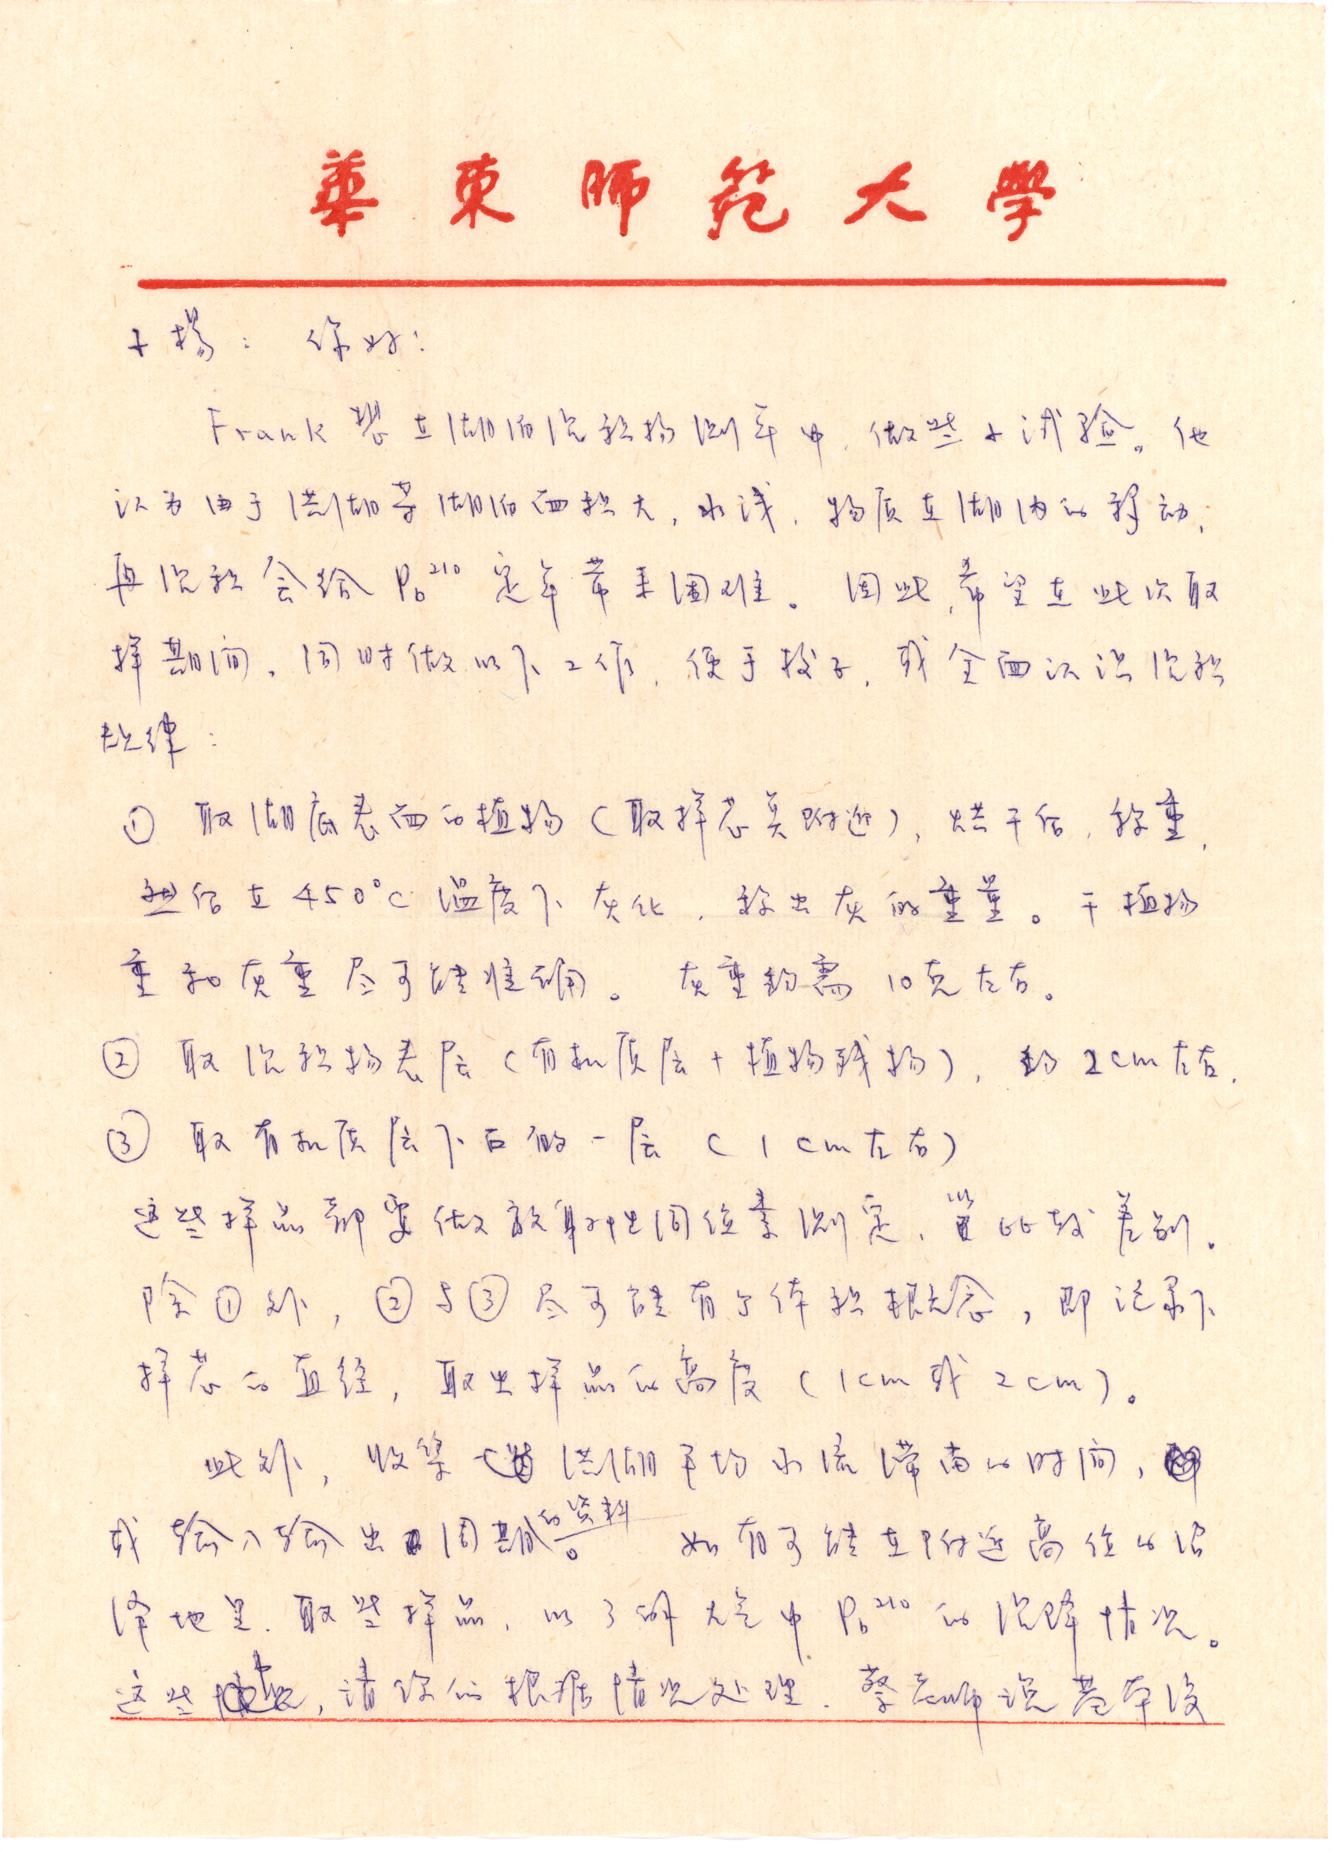 華東師范大學
小楊： 你好：
Frank 想在湖泊沉积物测年中，做些小试验。他
认为由于洪湖等湖泊面积大，水浅，物质在湖内的移动，
再沉积会给 Pb²¹⁰ 定年带来困难。因此，希望在此次取
样期间，同时做以下工作，便于校正，或全面认识沉积
规律：
① 取湖底表面的植物（取样芯点附近），烘干后，称重，
然后在 450°C 温度下灰化，称出灰的重量。干植物
重和灰重尽可能准确。 灰重约需 10克左右。
② 取沉积物表层（有机质层 + 植物残物），约 2cm 左右。
③ 取有机质层下面的一层（1 cm 左右）
这些样品都要做放射性同位素测定，比较差别。
除①外，②与③尽可能有个体积概念，即记录下
样芯的直径，取出样品的高度（1cm 或 2cm）。
此外，收集一些洪湖平均水流滞留的时间，
或输入输出周期的资料。 如有可能在附近高位的沼
泽地里，取些样品，以了解大气中 Pb²¹⁰ 的沉降情况。
这些，请你们根据情况处理。蔡老师说若有没